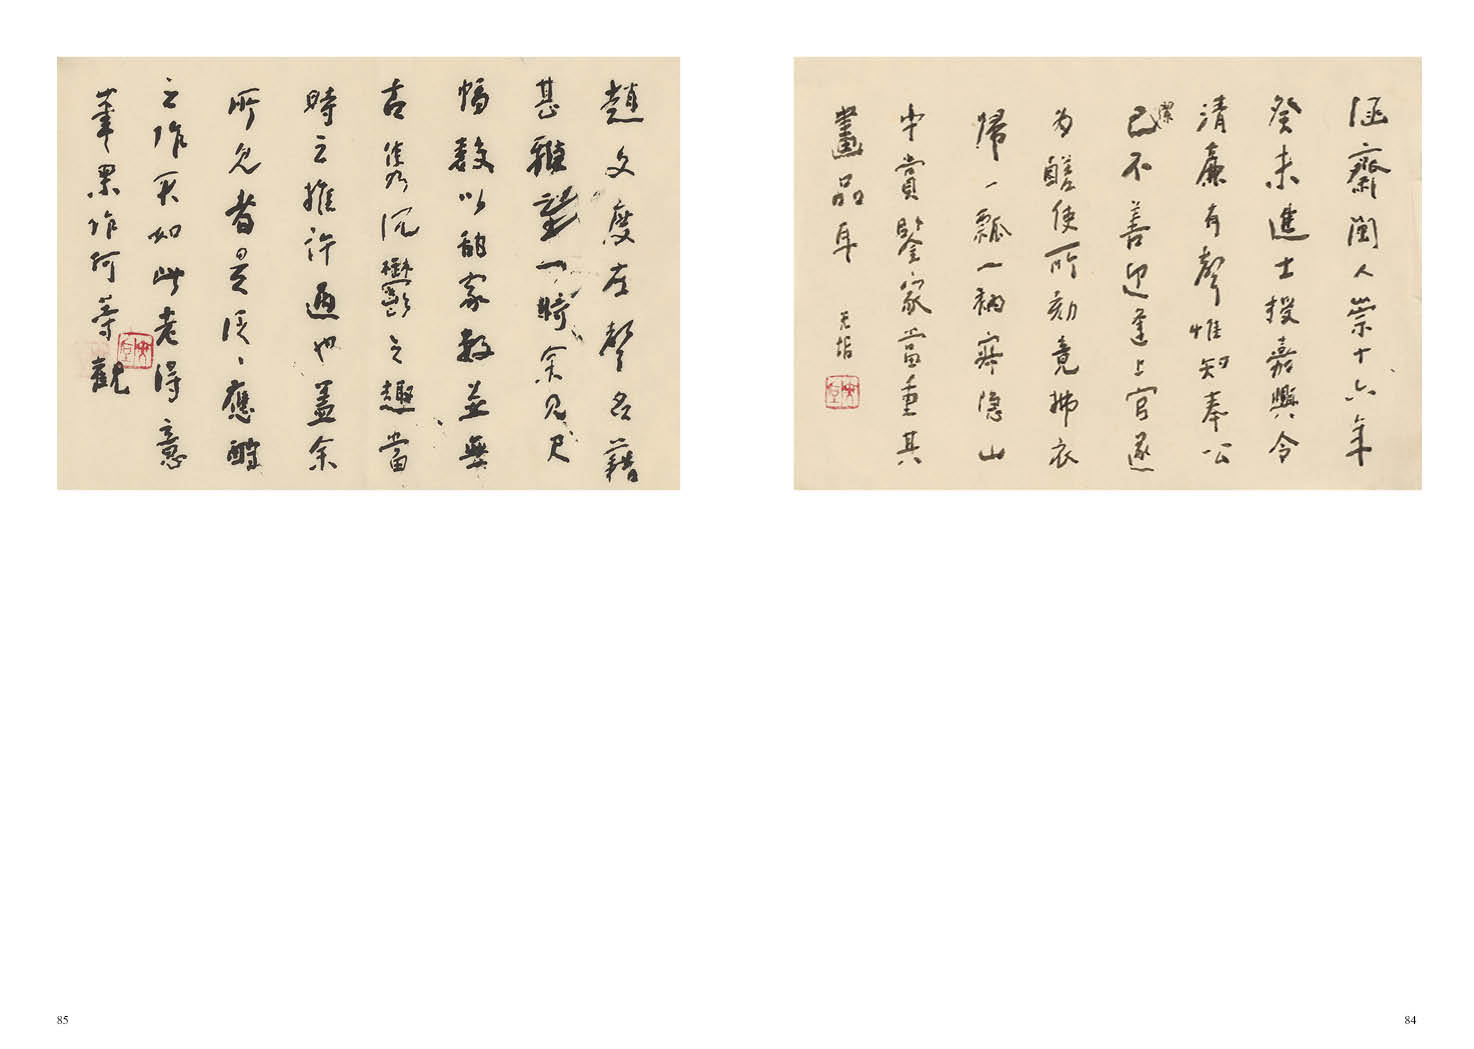 涵齋閩人崇十六年
癸未進士授嘉興令
清廉有聲惟知奉公
潔己不善迎逢上官遂
為醝使所劾竟拂衣
歸一瓢一衲隱山
中賞鑒家當重其
畫品耳 无垢
84
趙文度左聲名藉
甚雅望一時余見尺
幅數以家數並無
古雋沉鬱之趣當
時之推許過也蓋余
所見者是泛泛應酬
之作不知此老得意
筆果作何等觀
85